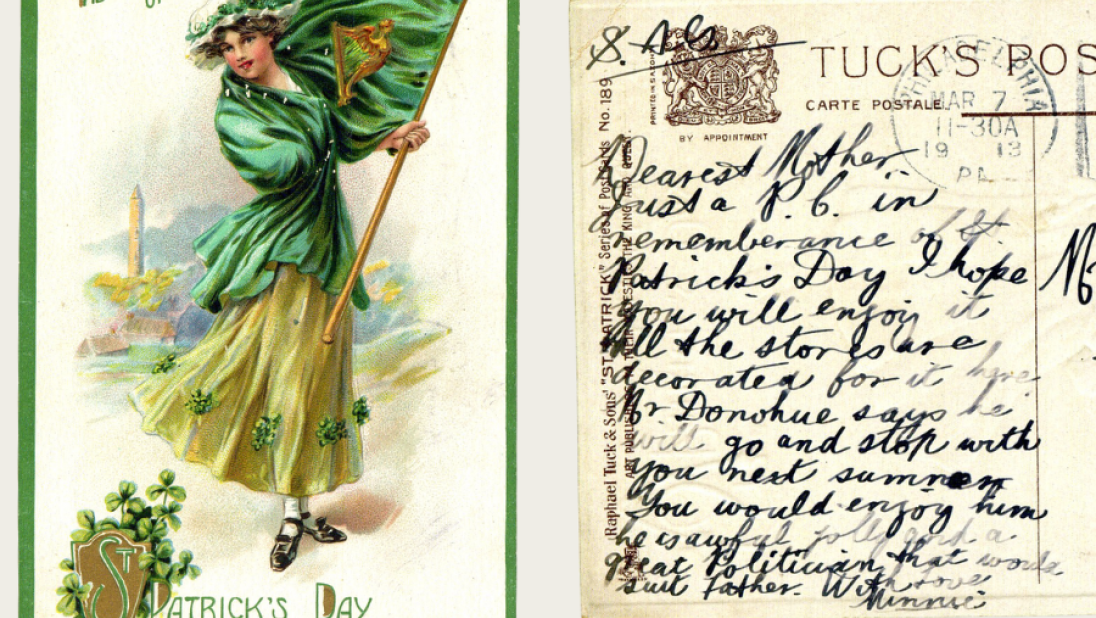 ST
PATRICK'S DAY
S. A. L.
PRINTED IN SAXONY
BY APPOINTMENT
TUCK'S POS
CARTE POSTALE
PHILADELPHIA
MAR 7
11-30A
19 13
PA
(Raphael Tuck & Sons' "ST PATRICK" Series of Post Cards No. 189
ART PUBLISHERS TO THEIR MAJESTIES THE KING AND QUEEN
Dearest Mother
Just a P. C. in
rememberance of St.
Patrick's Day I hope
you will enjoy it
All the stores are
decorated for it here
Mr Donohue says he
will go and stop with
you next summer
You would enjoy him
he is awful jolly and a
great Politician, that would
suit Father. With love
Minnie